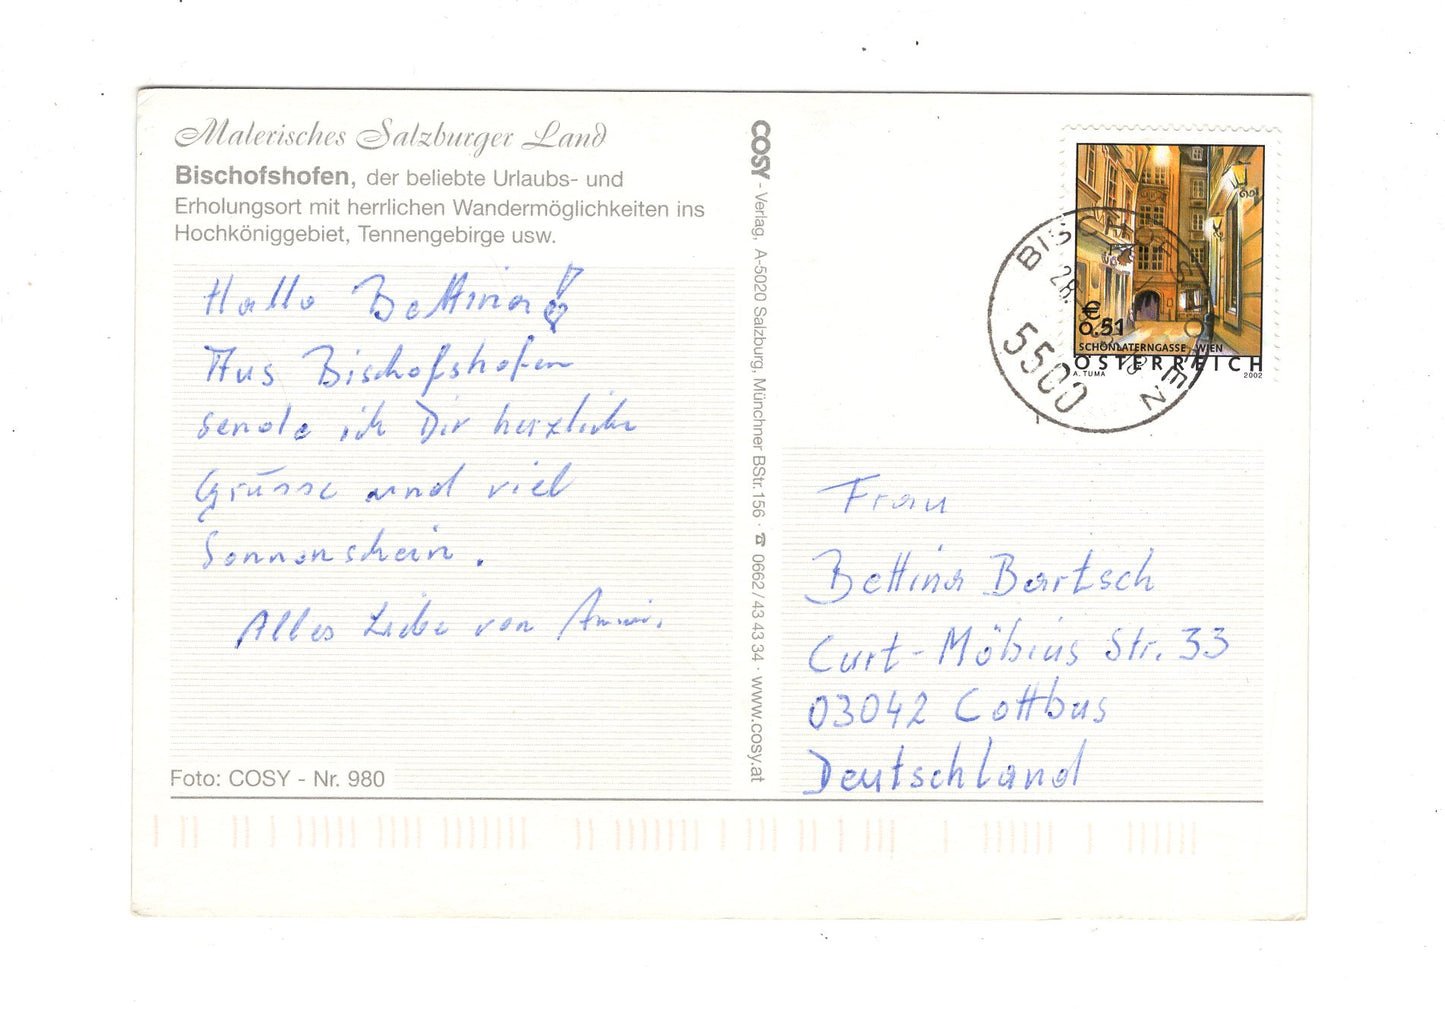 Malerisches Salzburger Land
Bischofshofen, der beliebte Urlaubs- und
Erholungsort mit herrlichen Wandermöglichkeiten ins
Hochköniggebiet, Tennengebirge usw.
Hallo Bettina!
Aus Bischofshofen
sende ich Dir herzliche
Grüsse und viel
Sonnenschein.
Alles Liebe von
Foto: COSY - Nr. 980
COSY - Verlag, A-5020 Salzburg, Münchner BStr. 156 · ☎ 0662/43 43 34 · www.cosy.at
€
0,51
SCHÖNLATERNGASSE - WIEN
ÖSTERREICH
A. TUMA
2002
BISCHOFSHOFEN
28.
5500
Frau
Bettina Bartsch
Curt-Möbius Str. 33
03042 Cottbus
Deutschland